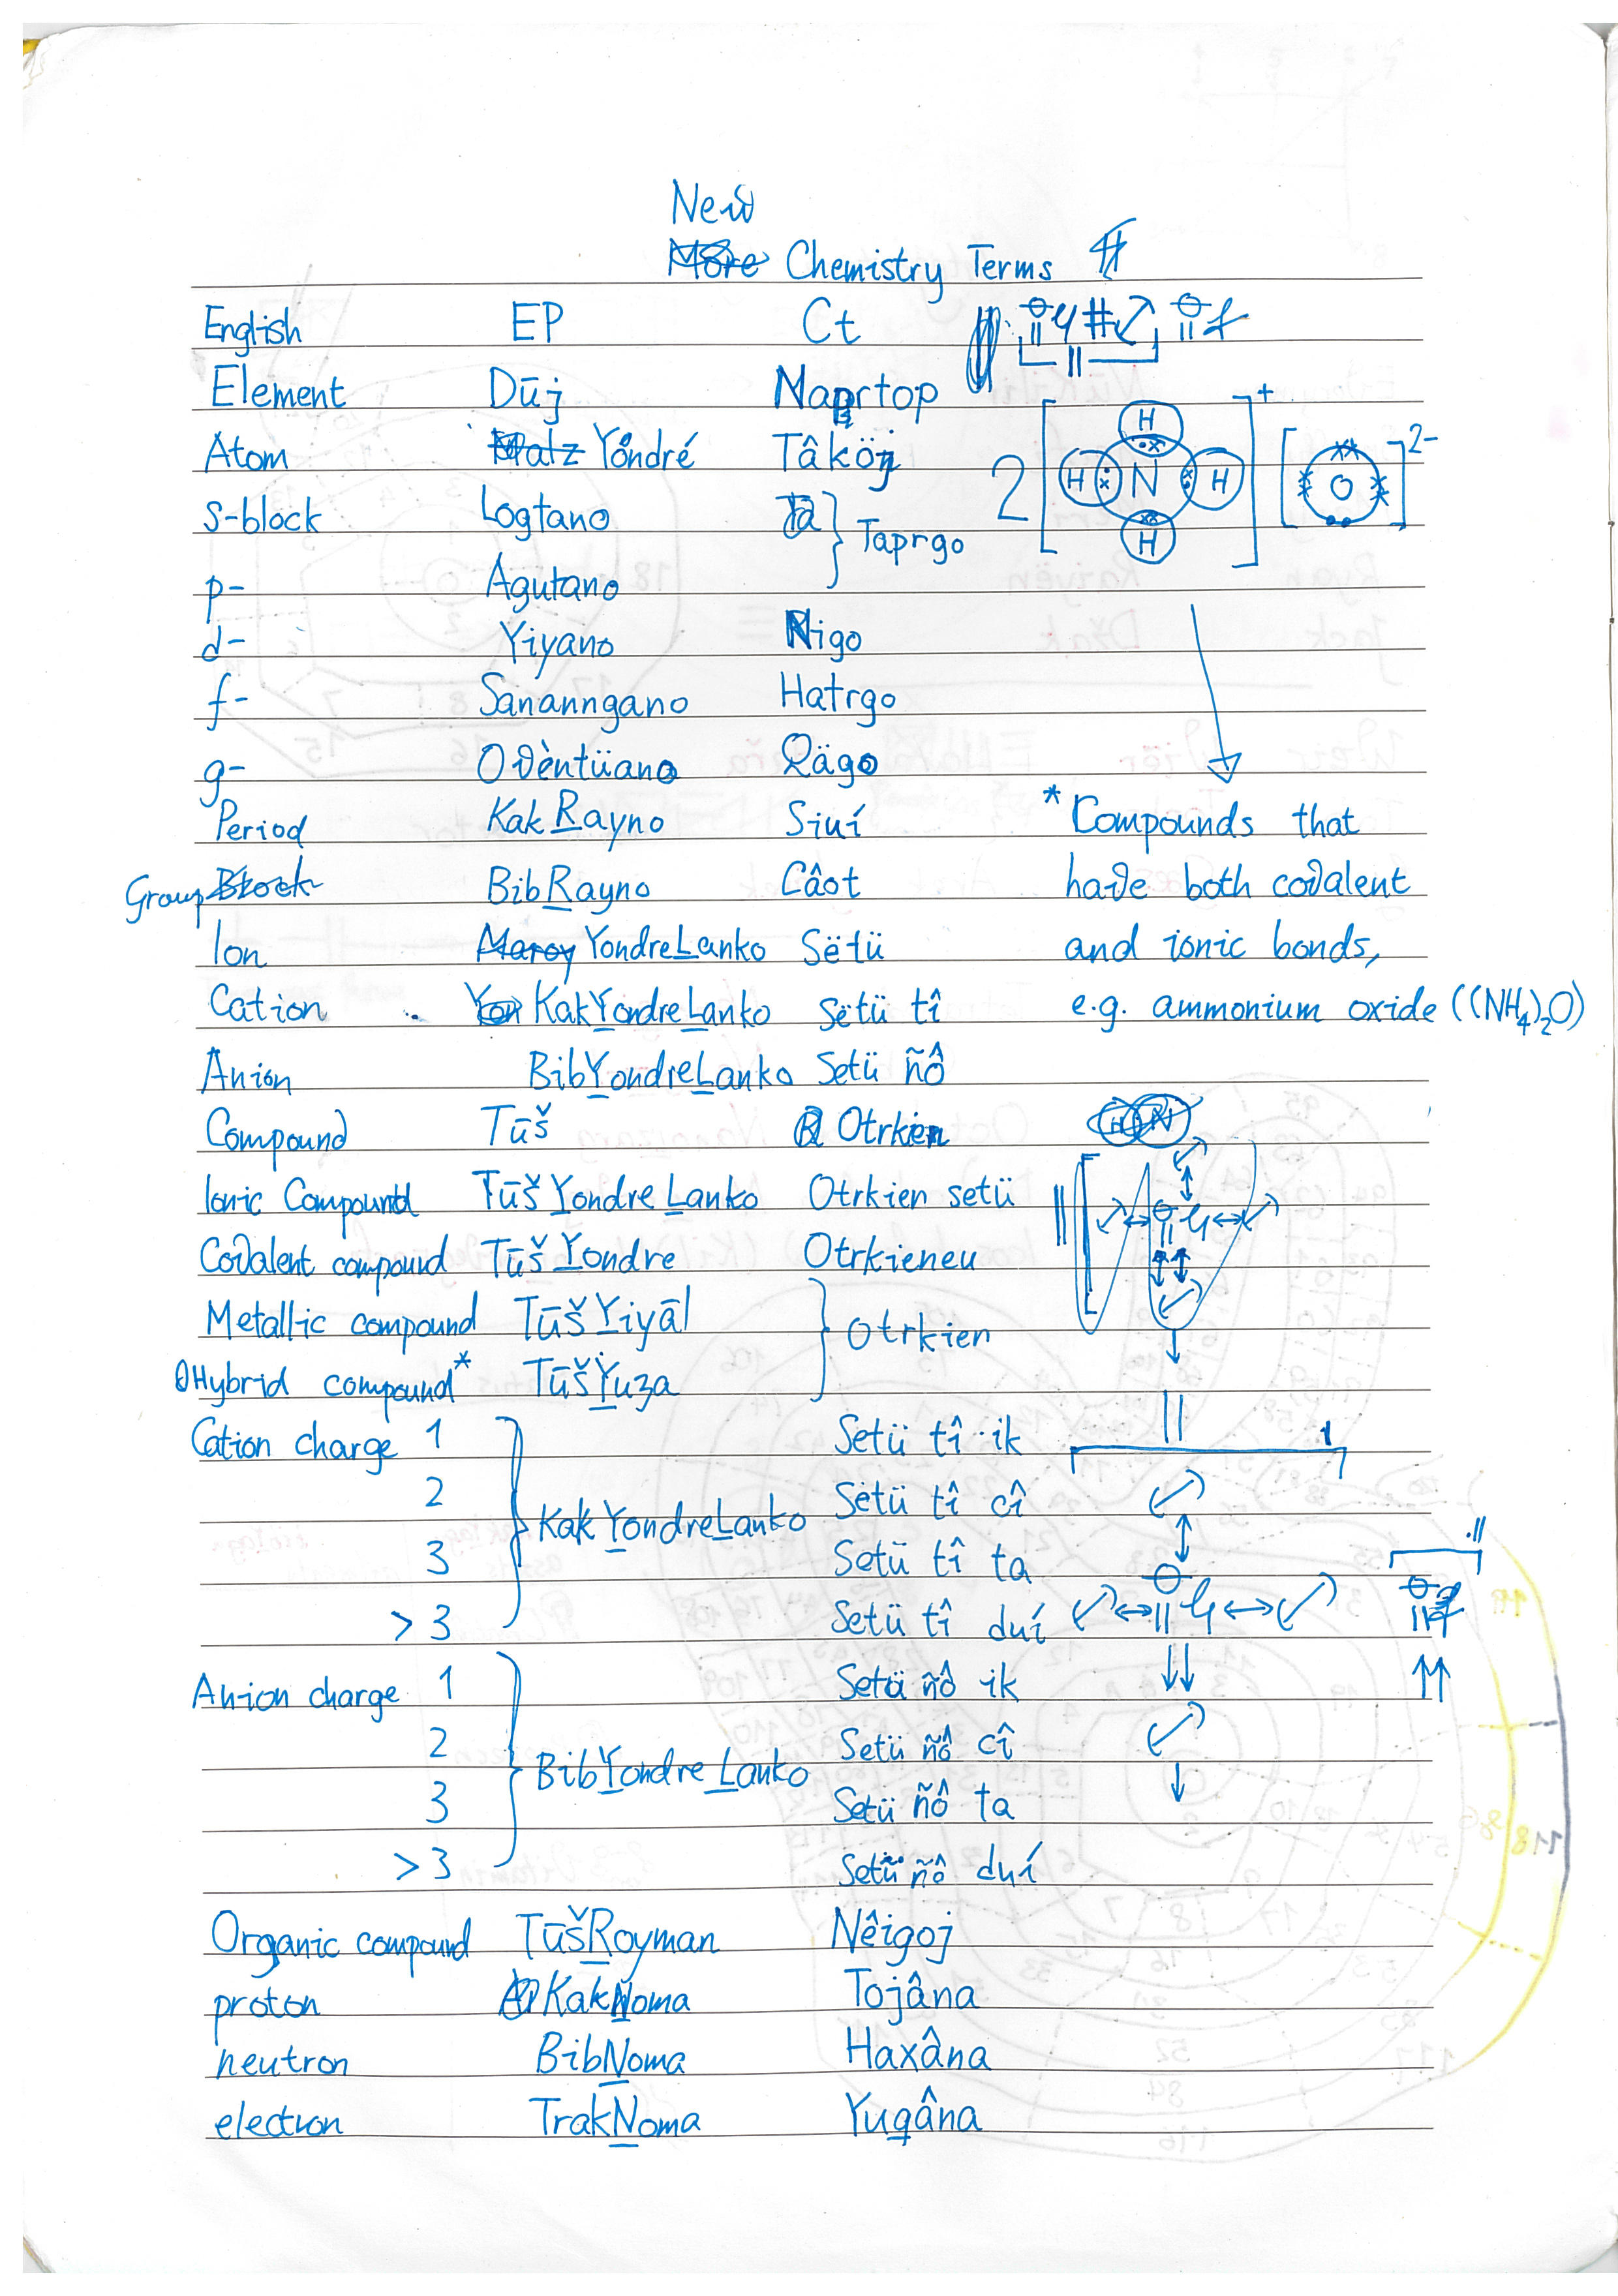 New
Chemistry Terms
English EP Ct
Element Dūj Naprtop
Atom Yondré Tâköj
s-block Logtano Taprgo
p- Agutano
d- Yiyano Nigo
f- Sananngano Hatrgo
g- Qägo
Period KakRayno Siuí
Group BibRayno Câot
Ion YondreLanko Sëtü
Cation KakYondreLanko Sëtü tî
Anion BibYondreLanko Setü ñô
Compound Tūš Otrkien
Ionic Compound TūšYondreLanko Otrkien setü
Covalent compound TūšYondre Otrkieneu
Metallic compound TūšYiyāl Otrkien
Hybrid compound* TūšYuza
Cation charge 1 KakYondreLanko Setü tî ik
2 Setü tî cî
3 Setü tî ta
>3 Setü tî duí
Anion charge 1 BibYondreLanko Setü ñô ik
2 Setü ñô cî
3 Setü ñô ta
>3 Setü ñô duí
Organic compound TūšRoyman Nêigoj
proton KakNoma Tojâna
neutron BibNoma Haxâna
electron TrakNoma Yugâna
2 [H H N H H]+ [O]2-
*Compounds that
have both covalent
and ionic bonds,
e.g. ammonium oxide ((NH4)2O)